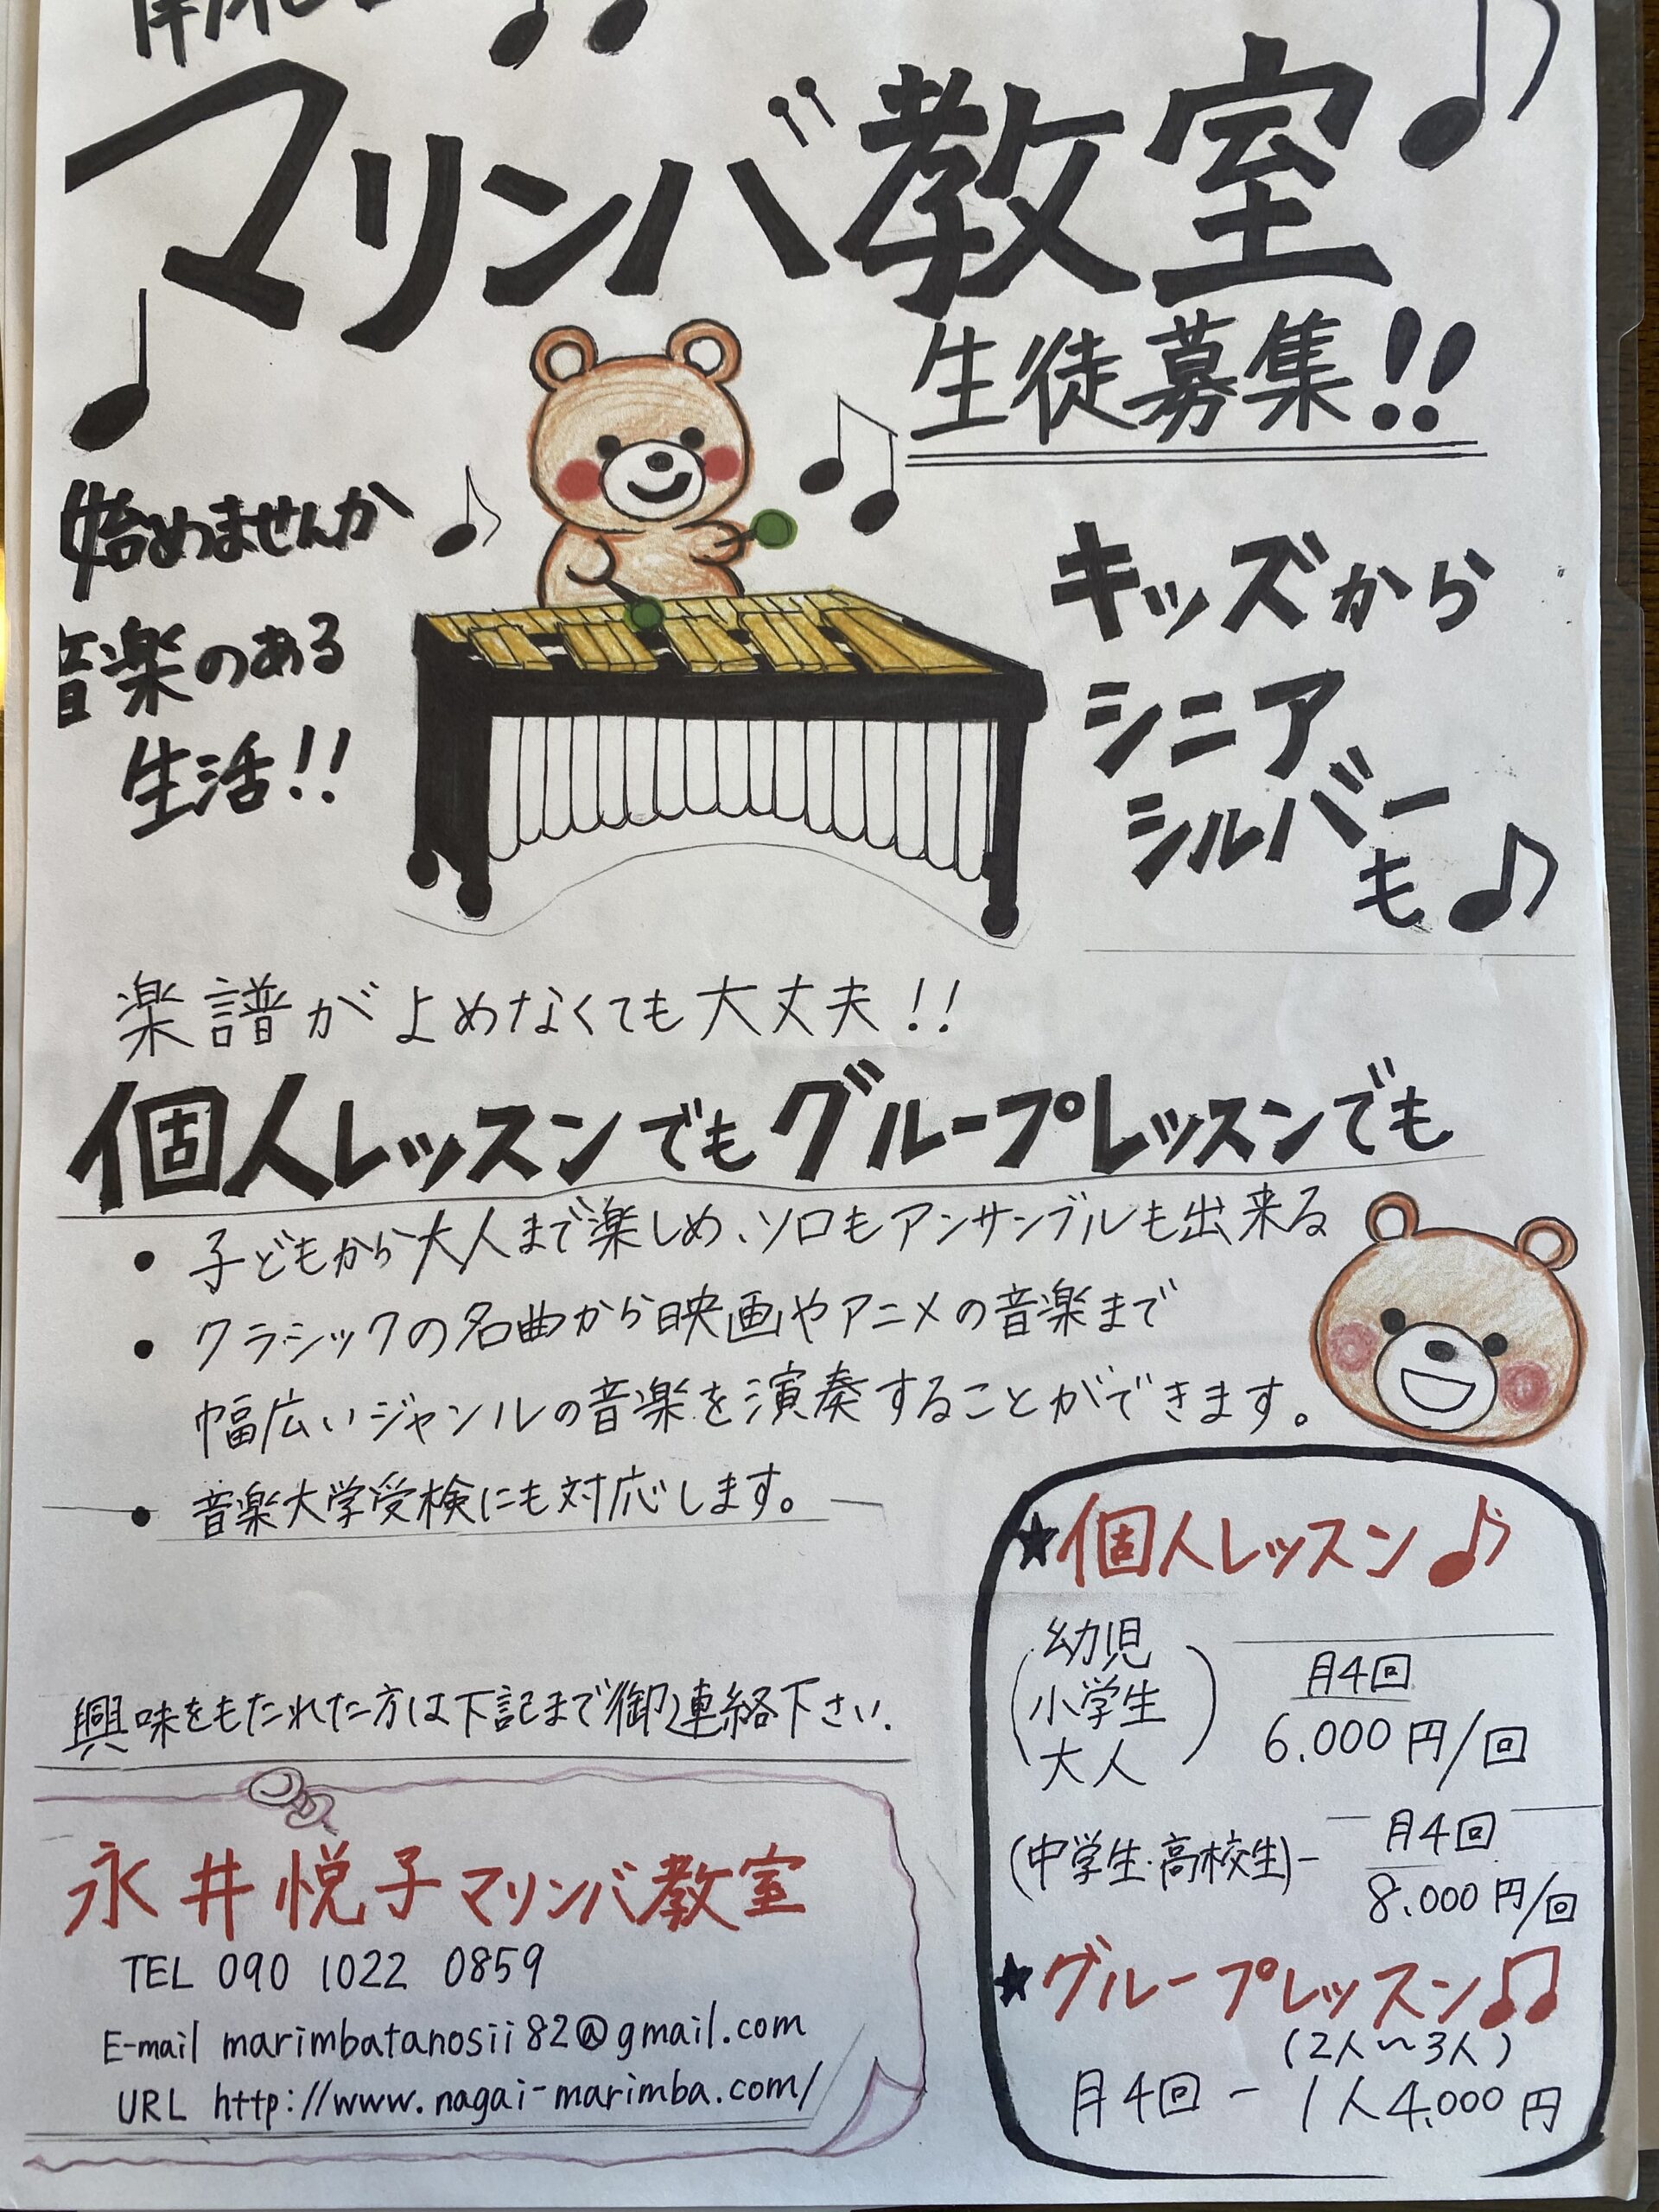 マリンバ教室
生徒募集!!
始めませんか
音楽のある
生活!!
キッズから
シニア
シルバー
も
楽譜がよめなくても大丈夫!!
個人レッスンでもグループレッスンでも
• 子どもから大人まで楽しめ、ソロもアンサンブルも出来る
• クラシックの名曲から映画やアニメの音楽まで
幅広いジャンルの音楽を演奏することができます。
• 音楽大学受検にも対応します。
興味をもたれた方は下記まで御連絡下さい.
永井悦子マリンバ教室
TEL 090 1022 0859
E-mail marimbatanosii82@gmail.com
URL http://www.nagai-marimba.com/
★個人レッスン♪
(幼児
小学生
大人)
月4回
6.000円/回
(中学生・高校生)- 月4回
8.000円/回
★グループレッスン♫
(2人〜3人)
月4回 - 1人4.000円